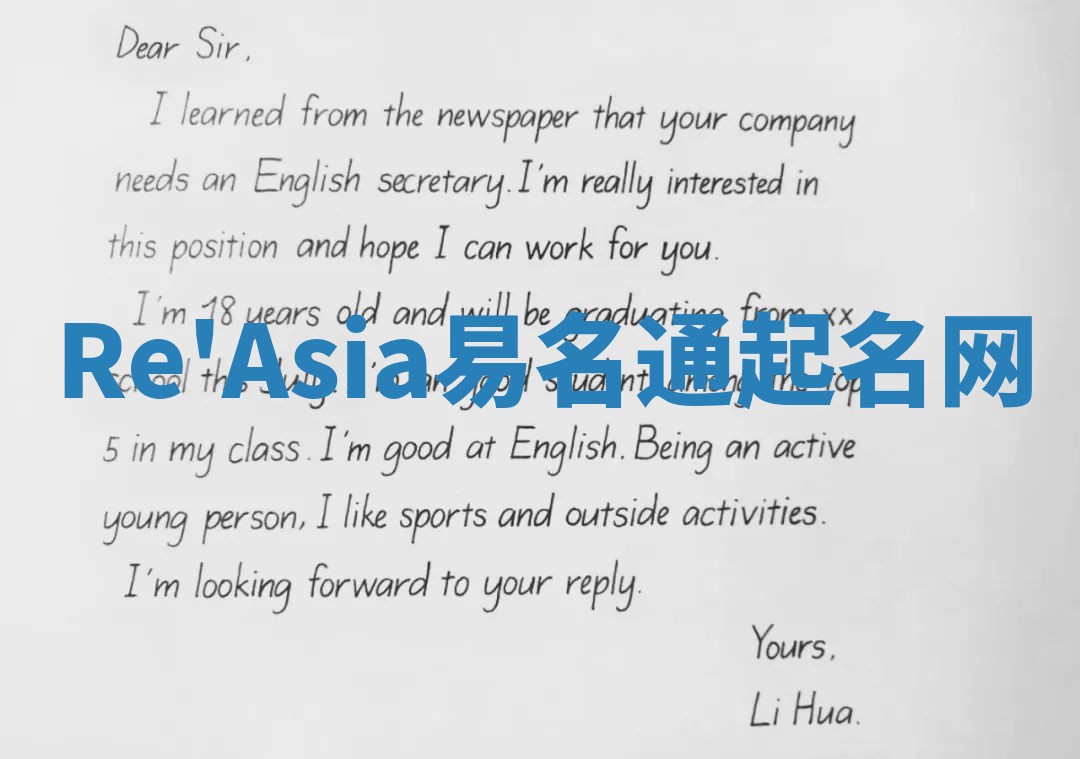 Dear Sir,
I learned from the newspaper that your company
needs an English secretary. I'm really interested in
this position and hope I can work for you.
I'm 18 years old and will be graduating from xx
Re'Asia易名通起名网
school this July. I'm an good student among the top
5 in my class. I'm good at English. Being an active
young person, I like sports and outside activities.
I'm looking forward to your reply.
Yours,
Li Hua.